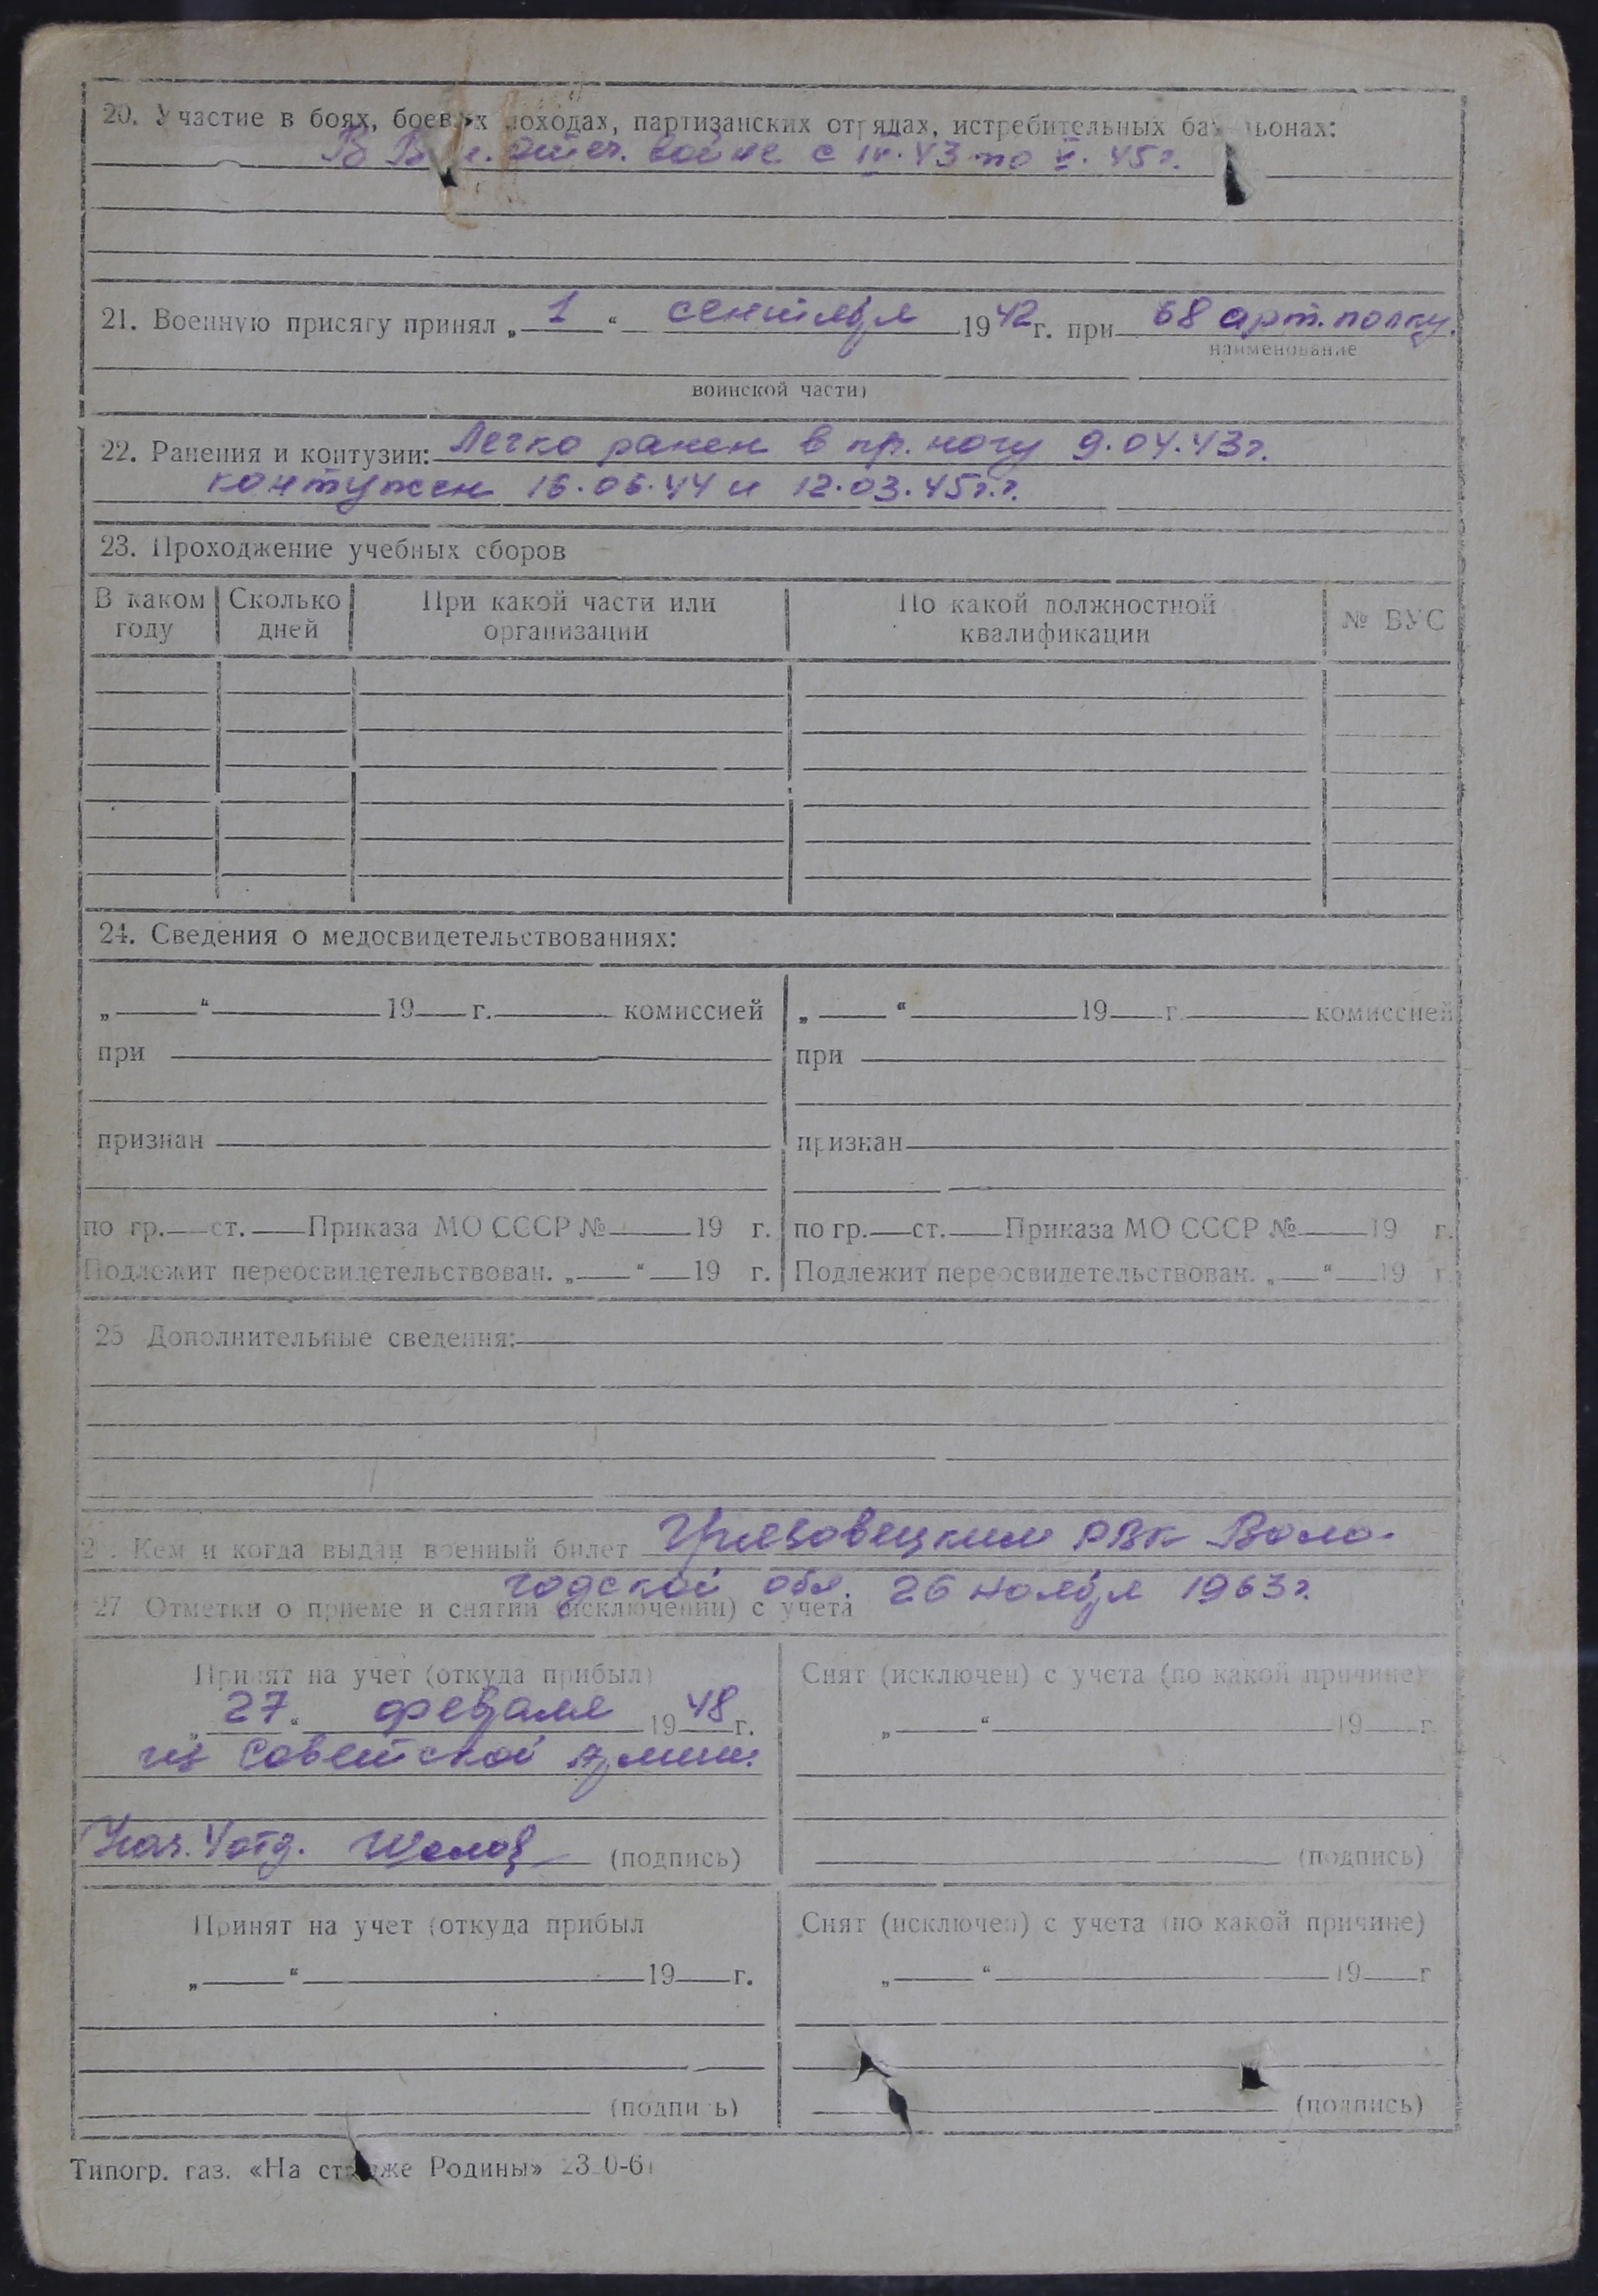 20. Участие в боях, боевых походах, партизанских отрядах, истребительных батальонах:
В Вел. Отеч. войне с IV.43 по V.45г.
21. Военную присягу принял „ 1 “ сентября 1942г. при 68 арт. полку.
наименование
воинской части)
22. Ранения и контузии: Легко ранен в пр. ногу 9.04.43г.
контужен 16.06.44 и 12.03.45г.г.
23. Прохождение учебных сборов
В каком году Сколько дней При какой части или организации По какой должностной квалификации № ВУС
24. Сведения о медосвидетельствованиях:
„ “ 19 г. комиссией „ “ 19 г. комиссией
при при
признан признан
по гр. ст. Приказа МО СССР № 19 г. по гр. ст. Приказа МО СССР № 19 г.
Подлежит переосвидетельствован. „ “ 19 г. Подлежит переосвидетельствован. „ “ 19 г.
25 Дополнительные сведения:
2. Кем и когда выдан военный билет Грязовецким РВК Воло-
годской обл. 26 ноября 1963г.
27 Отметки о приеме и снятии (исключении) с учета
Принят на учет (откуда прибыл) Снят (исключен) с учета (по какой причине)
„ 27 “ февраля 1948 г. „ “ 19 г
из Советской Армии.
Нач. 4 отд. (подпись) (подпись)
Принят на учет (откуда прибыл Снят (исключен) с учета (по какой причине)
„ “ 19 г. „ “ 19 г
(подпись) (подпись)
Типогр. газ. «На страже Родины»